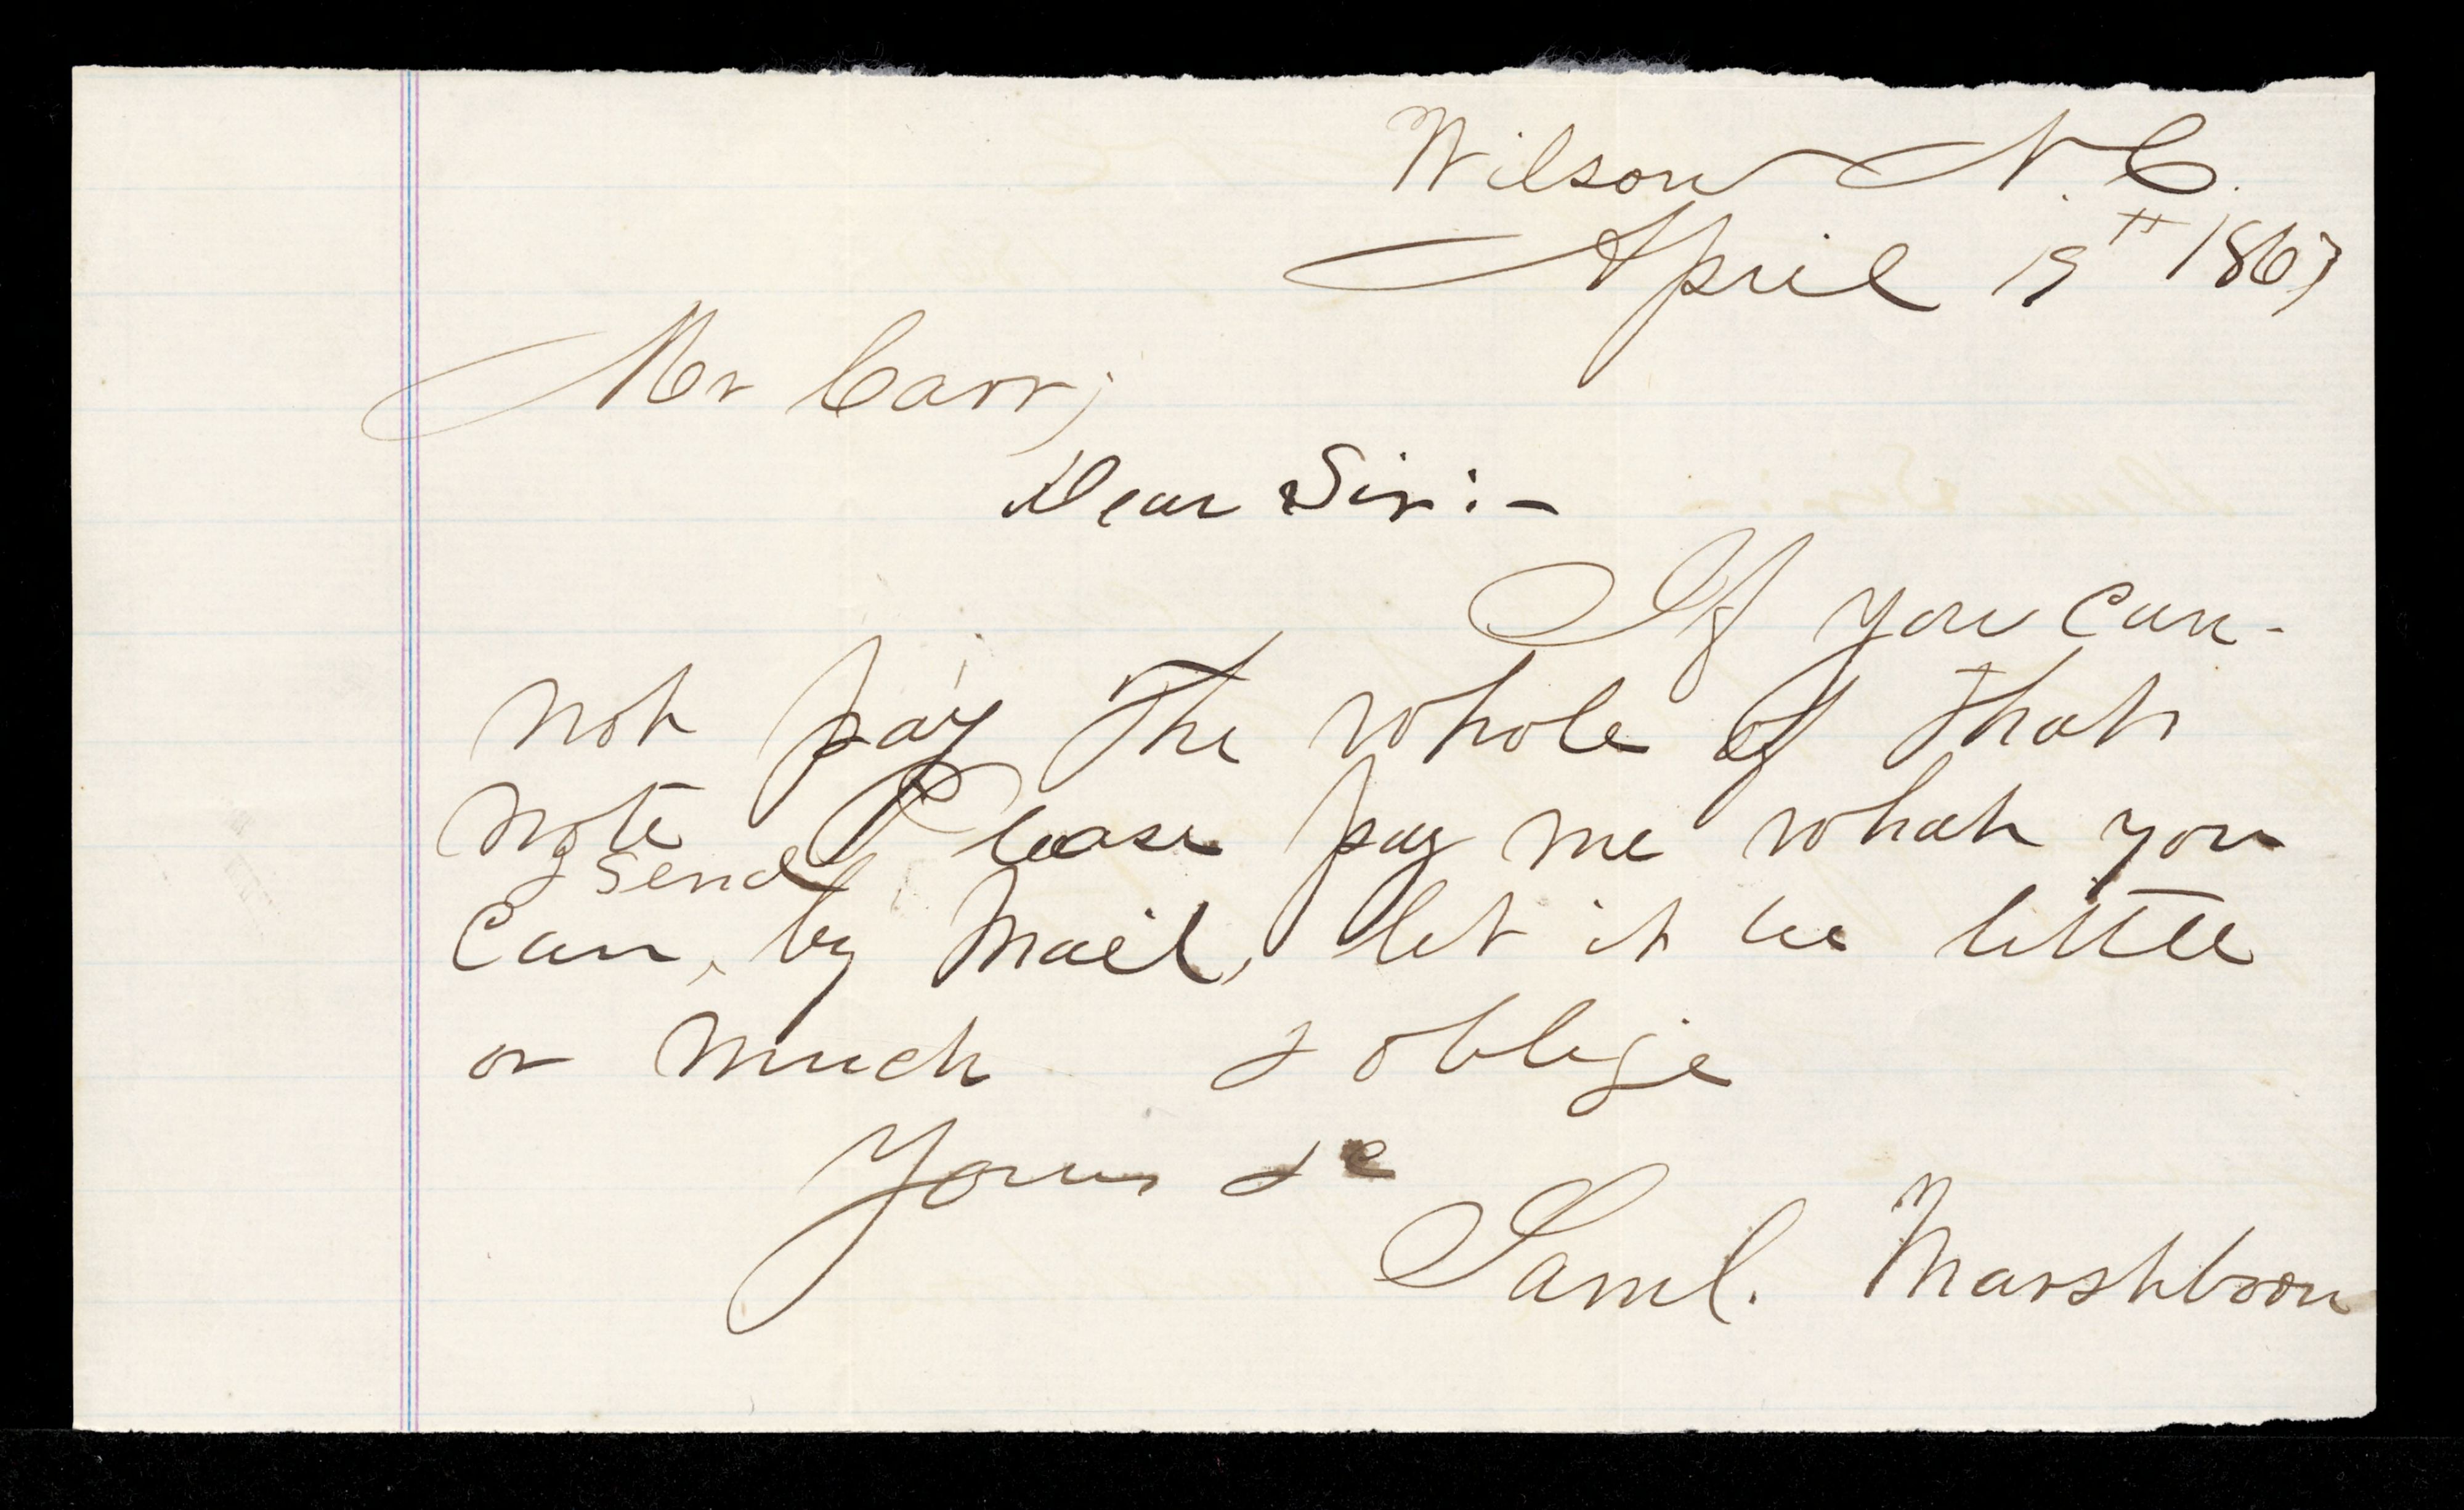 Wilson N. C.
April 19th 1867
Mr Carr;
Dear Sir:-
If you can-
not pay the whole of that
note Please pay me what you
& send
can, by mail, let it be little
or much & oblige
Yours &c
Saml. Marshborn